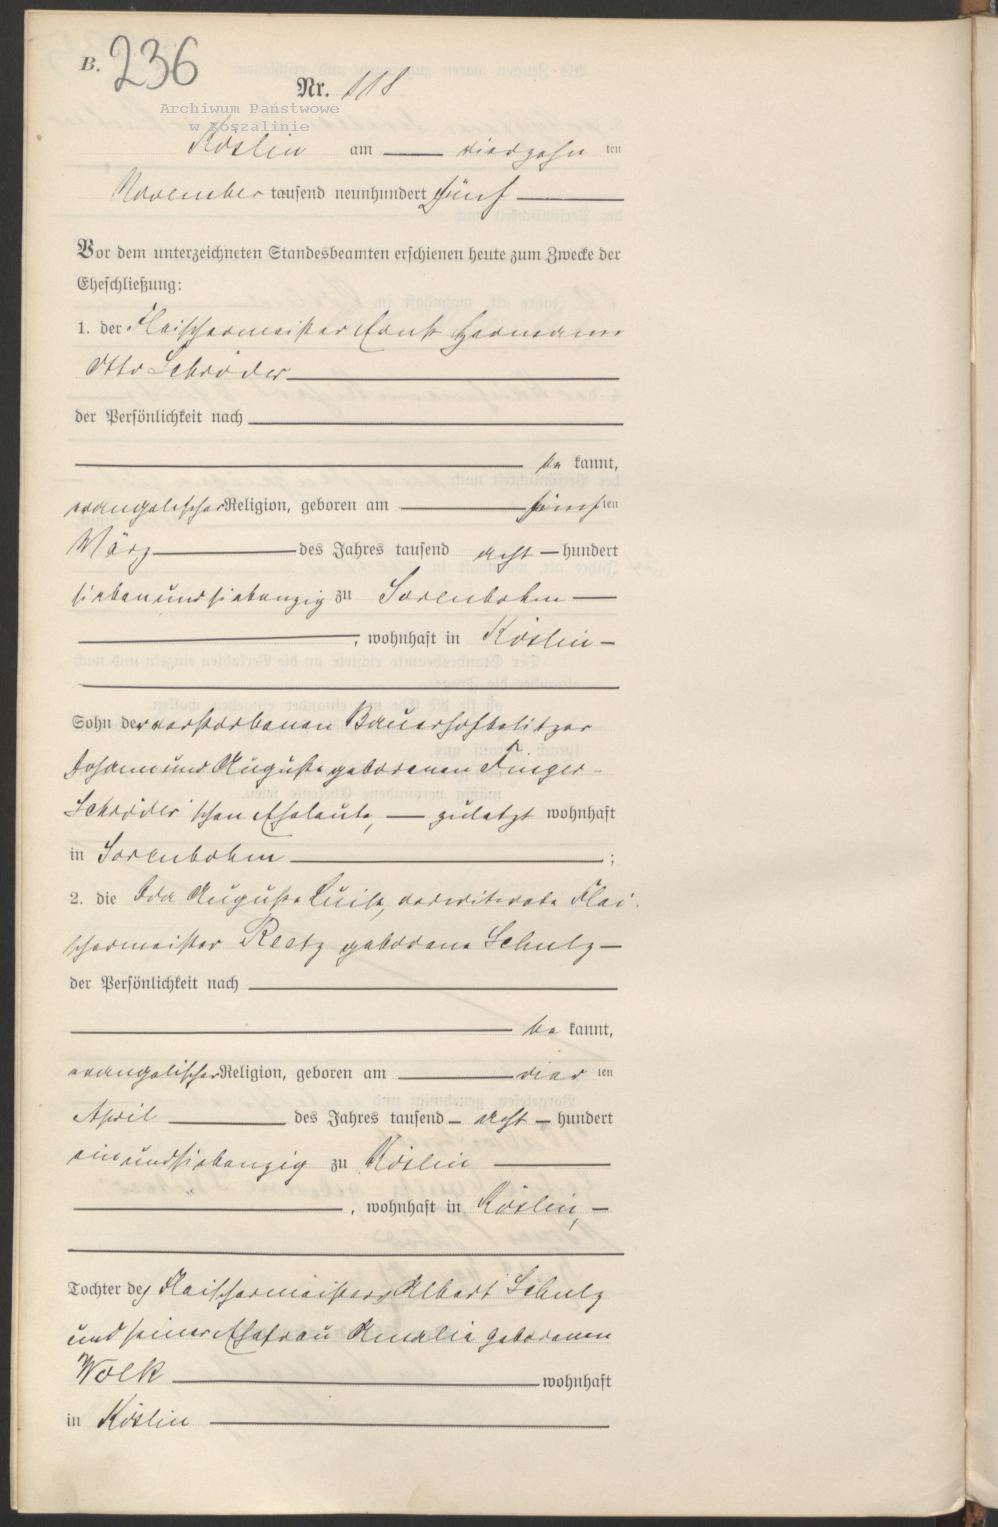 B. 236
Nr. 118
Archiwum Państwowe
w Koszalinie
Köslin am vierzehn ten
November tausend neunhundert fünf
Vor dem unterzeichneten Standesbeamten erschienen heute zum Zwecke der
Eheschließung:
1. der Fleischermeister Ernst Hermann
Otto Schröder
der Persönlichkeit nach
be kannt,
evangelischer Religion, geboren am fünften
März des Jahres tausend acht hundert
siebenundsiebenzig zu Sorenbohm
, wohnhaft in Köslin
Sohn der verstorbenen Bauerhofbesitzer
Johann und Auguste geborenen Finger-
Schröder'schen Eheleute, zuletzt wohnhaft
in Sorenbohm ;
2. die Ida Auguste Luise, verwitwete Flei-
schermeister Reetz geborene Schulz
der Persönlichkeit nach
be kannt,
evangelischer Religion, geboren am vier ten
April des Jahres tausend acht hundert
einundsiebenzig zu Köslin
, wohnhaft in Köslin,
Tochter des Fleischermeisters Albert Schulz
und seiner Ehefrau Amalie geborenen
Wolk wohnhaft
in Köslin